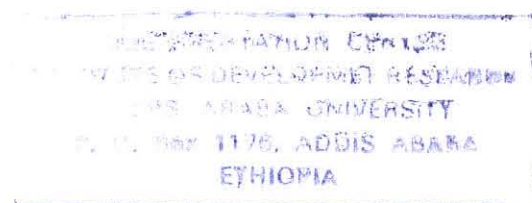 DOCUMENTATION CENTRE
INSTITUTE OF DEVELOPMET RESEARCH
ADDIS ABABA UNIVERSITY
P. O. Box 1176, ADDIS ABABA
ETHIOPIA